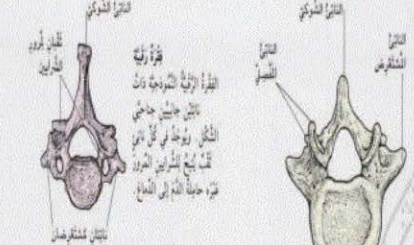 الناتئ الشوكي
ثقبان لمرور
الشرايين
فقرة رقبية
الفقرة الرقبية النموذجية ذات
ناتئين جانبيين جناحي
الشكل. ويوجد في كل ناتئ
ثقب يتيح للشرايين المرور
عبره حاملة الدم إلى الدماغ.
ناتئان مستعرضان
الناتئ الشوكي
الناتئ
المستعرض
الناتئ
المفصلي